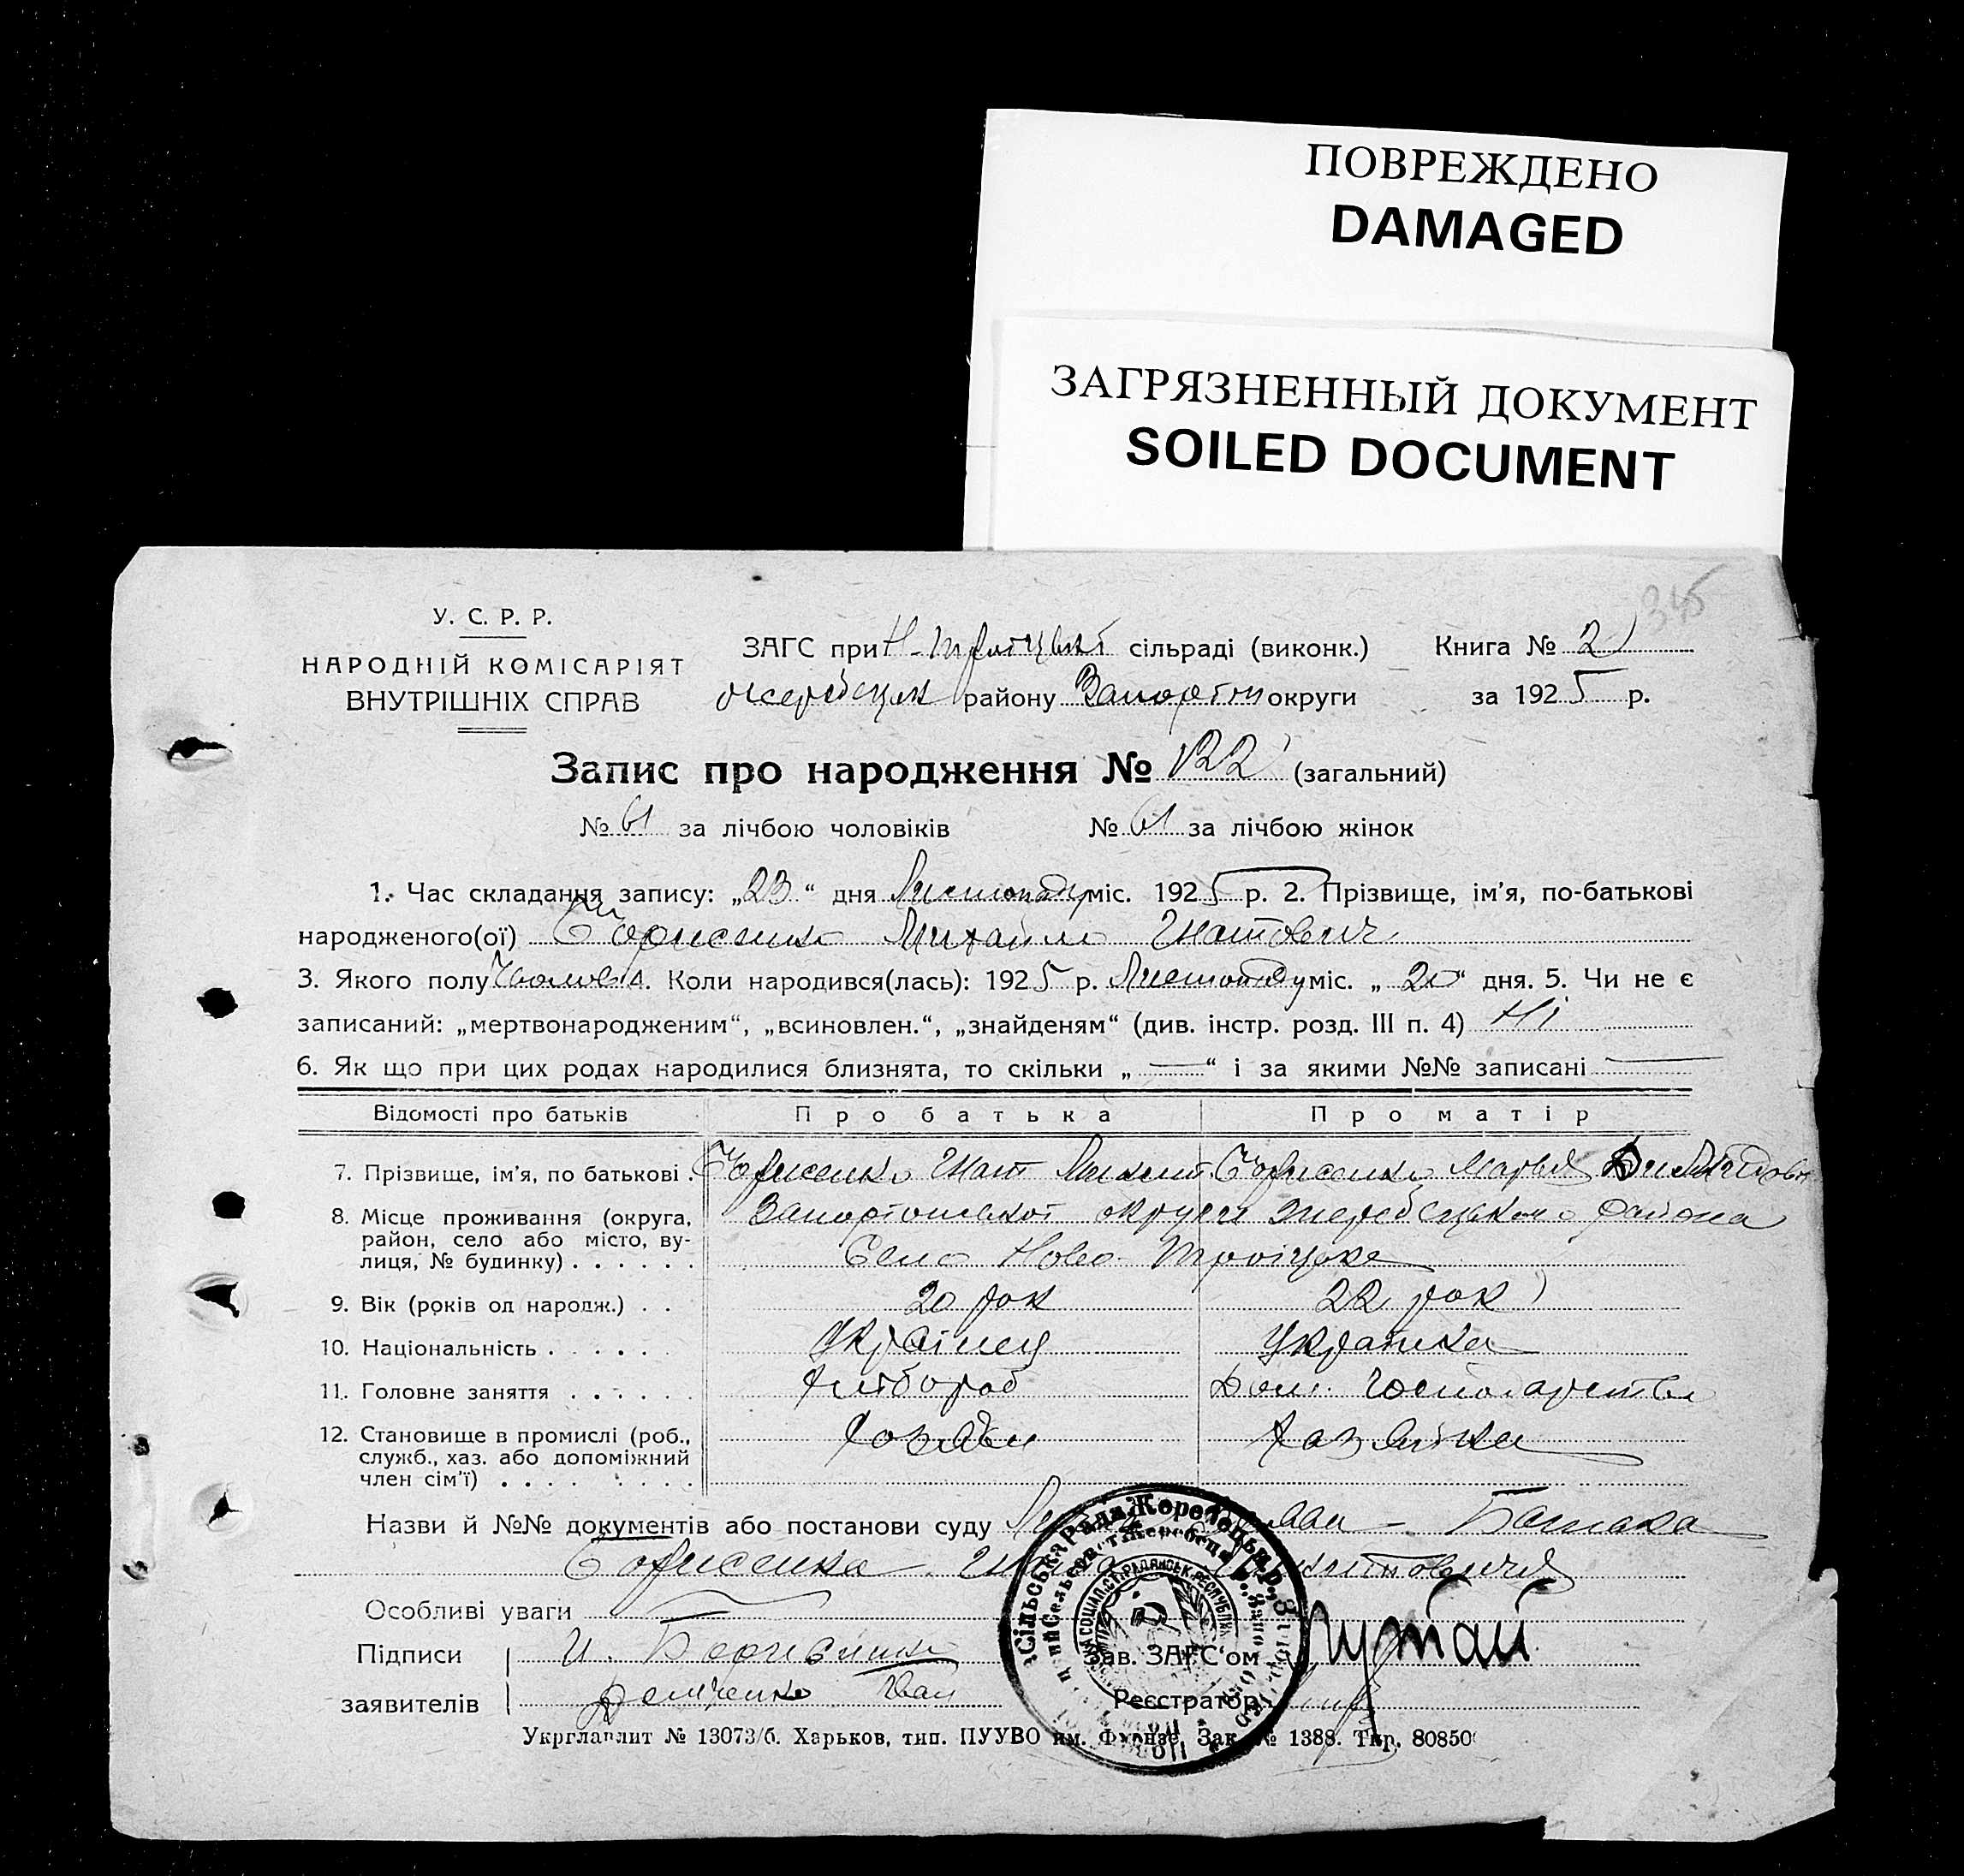 ПОВРЕЖДЕНО
DAMAGED
ЗАГРЯЗНЕННЫЙ ДОКУМЕНТ
SOILED DOCUMENT
345
У. С. Р. Р.
НАРОДНІЙ КОМІСАРІЯТ
ВНУТРІШНІХ СПРАВ
ЗАГС при сільраді (виконк.) Книга № 2
району округи за 1925 р.
Запис про народження № 122 (загальний)
№ 61 за лічбою чоловіків № 61 за лічбою жінок
1. Час складання запису: „23“ дня Листопаду міс. 1925 р. 2. Прізвище, ім'я, по-батькові
народженого(ої) Борисенко Михайло Гнатович
3. Якого полу 4. Коли народився(лась): 1925 р. Листопаду міс. „20“ дня. 5. Чи не є
записаний: „мертвонародженим“, „всиновлен.“, „знайденям“ (див. інстр. розд. III п. 4) Ні
6. Як що при цих родах народилися близнята, то скільки „ — “ і за якими №№ записані —
Відомості про батьків Про батька Про матір
7. Прізвище, ім'я, по батькові . Борисенко Гнат Микит. Борисенко Марья
8. Місце проживання (округа, район, село або місто, вулиця, № будинку) . . . . . . округи района
Село Ново-Троіцьке
9. Вік (років од народж.) . . 20 рок 22 рок
10. Національність . . . . . . Українец Українка
11. Головне заняття . . . . . . Хлібороб Дом. Господарство
12. Становище в промислі (роб., служб., хаз. або допоміжний член сім'ї) . . . . . . . . Хазяйка
Назви й №№ документів або постанови суду Батька
Борисенка Гната Микитовича
Особливі уваги
Підписи И. Борисенко
заявителів Демченко Иван
Зав. ЗАГС'ом
Реєстратор
Укрглавлит № 13073/б. Харьков, тип. ПУУВО им. Фрунзе. Зак. № 1388. Тир. 80850